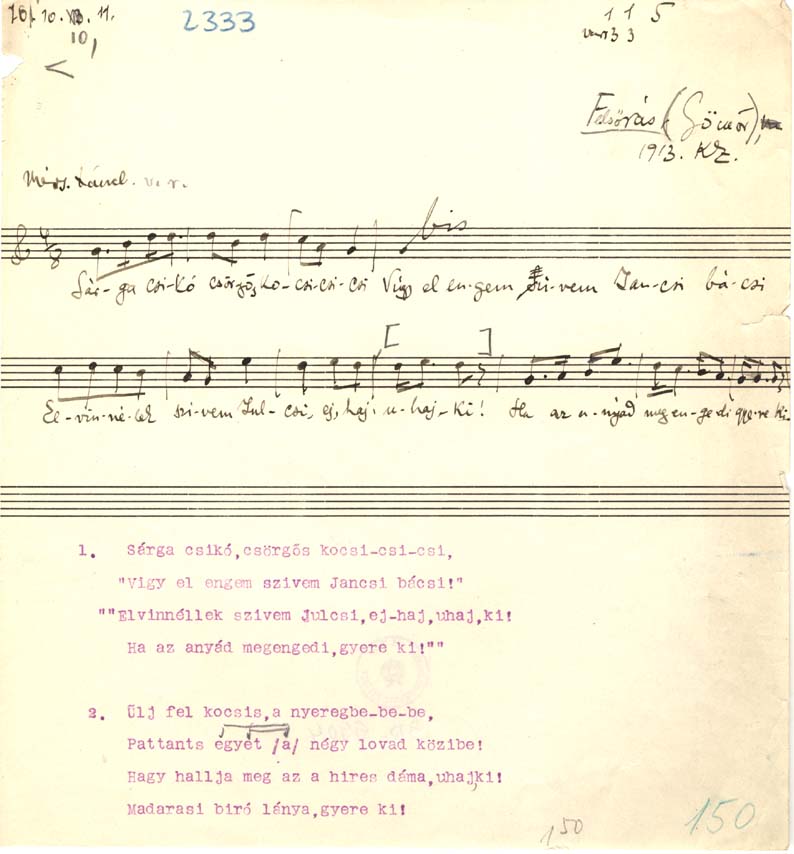 10. 11.
10,
2333
1 1 5
3 3
Felsőrás (Gömör),
1913. KZ.
v. r.
bis
Sár-ga csi-kó csörgős, ko-csi-csi-csi Vigy el en-gem szi-vem Jan-csi bá-csi
El-vin-né-lek szi-vem Jul-csi, ej, haj, u-haj, ki! Ha az a-nyád meg en-ge-di gye-re ki
1. Sárga csikó,csörgős kocsi-csi-csi,
"Vigy el engem szivem Jancsi bácsi!"
""Elvinnéllek szivem Julcsi,ej-haj,uhaj,ki!
Ha az anyád megengedi,gyere ki!""
2. Ülj fel kocsis,a nyeregbe-be-be,
Pattants egyet /a/ négy lovad közibe!
Hagy hallja meg az a hires dáma,uhaj,ki!
Madarasi biró lánya,gyere ki!
150
150